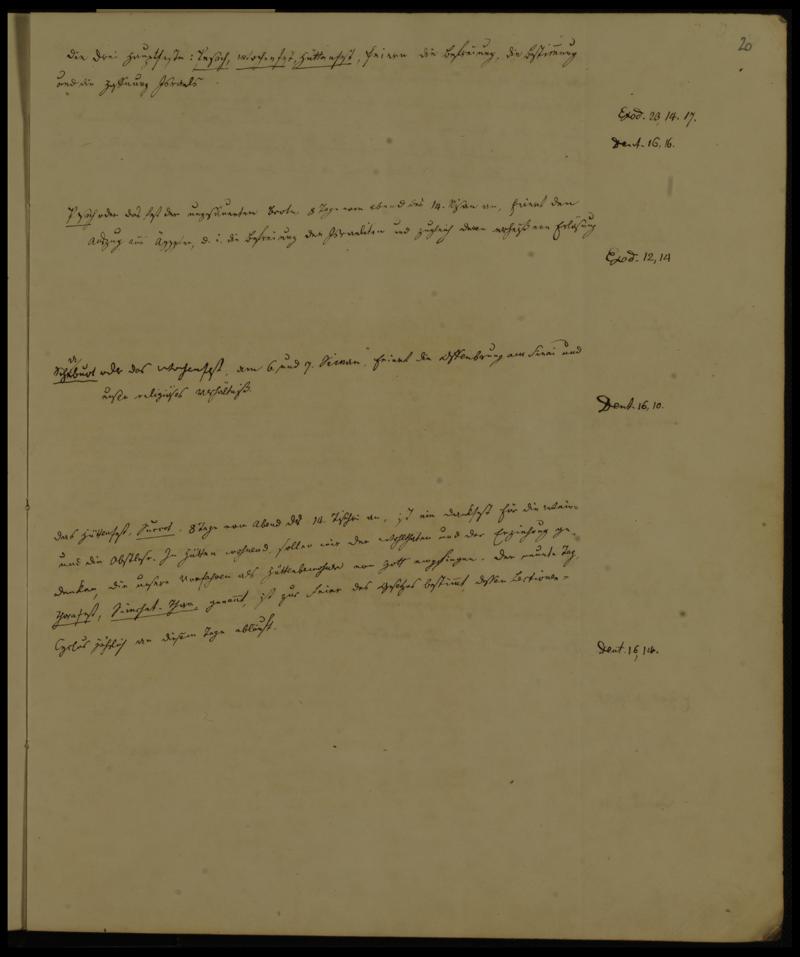 20
Die drei Hauptfeste: Pesach, Wochenfest, Hüttenfest, feiern die Befreiung, die Bestimmung
und die Hoffnung Israels
Exod. 23, 14. 17.
Deut. 16, 16.
Pesach oder das Fest der ungesäuerten Brote, 8 Tage vom Abend des 14. Nisan an, feiert den
Auszug aus Ägypten, d. i. die Befreiung der Israeliten und zugleich deren Erlösung
Exod. 12, 14
Schabuot oder das Wochenfest, am 6 und 7. Siwan, feiert die Offenbarung am Sinai und
unser religiöses Verhältniß.
Deut. 16, 10.
Das Hüttenfest, Succot. 8 Tage vom Abend des 14. Tischri an, ist ein Dankfest für die Wein-
und die Obstlese. In Hütten wohnend sollen wir der Wohlthaten und der Erziehung ge-
denken, die unsere Vorfahren als Hüttenbewohner von Gott empfingen. Der neunte Tag,
Thorafest, Simchat-Thora genannt, ist zur Feier des Gesetzes bestimmt, dessen Lections-
Cyclus jährlich an diesem Tage abläuft.
Deut. 16,